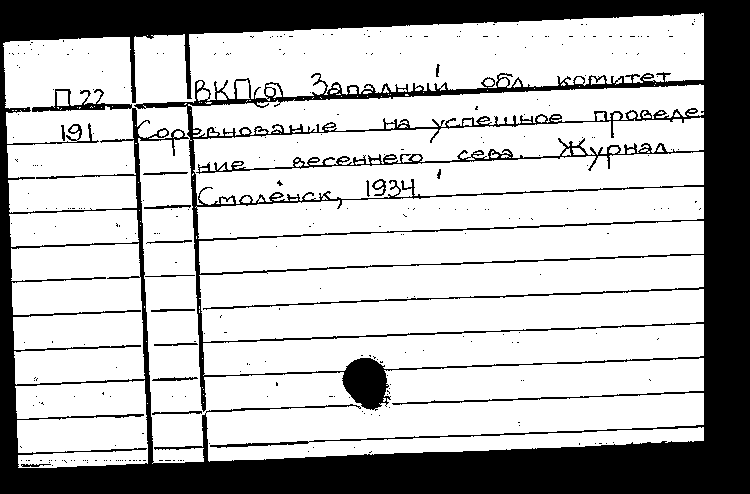 П 22 ВКП(б) Западный обл. комитет
191 Соревнование на успешное проведе-
ние весеннего сева. Журнал.
Смоленск, 1934.